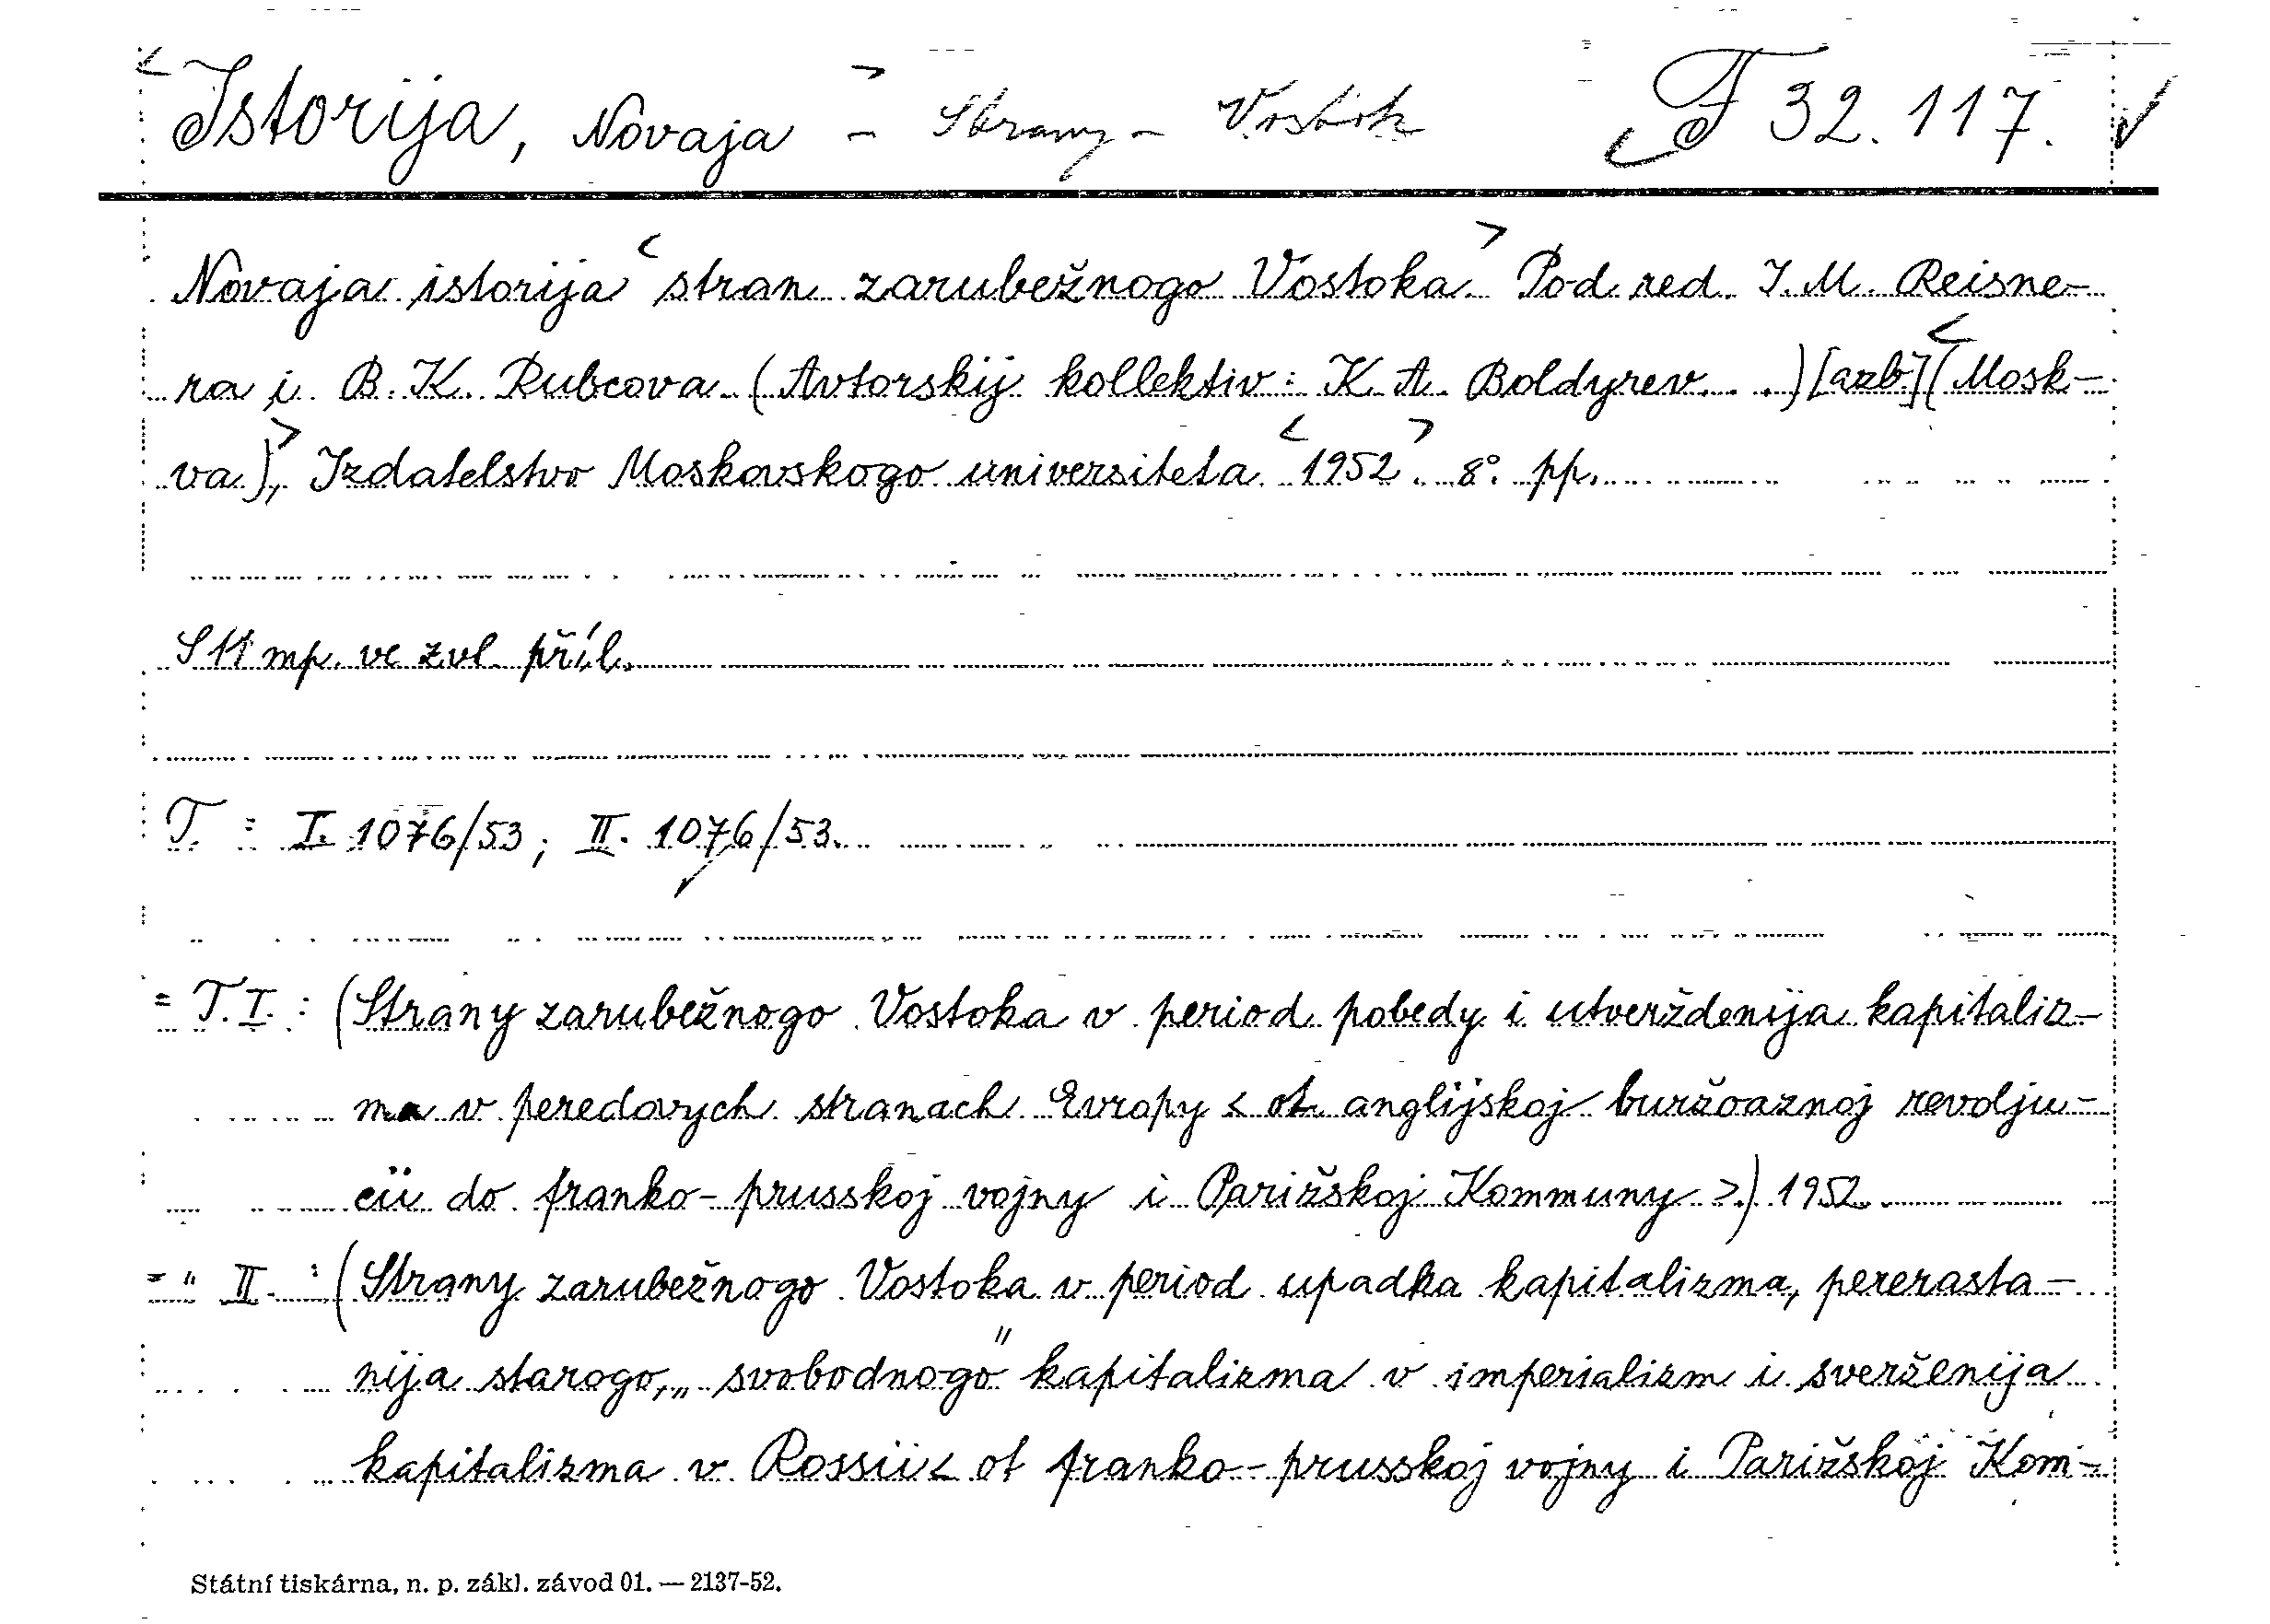 <Istorija, Novaja> - Strany - Vostok F 32.117.
Novaja istorija <stran zarubežnogo Vostoka>. Pod red. I. M. Reisne-
ra i B. K. Rubcova. (Avtorskij kollektiv: K. A. Boldyrev. . .) [azb.] <(Mosk-
va)>, Izdatelstvo Moskovskogo universiteta <1952>. 8°. pp.
S 11 mp. ve zvl. příl.
T. = I. 1076/53; II. 1076/53.
= T. I. : (Strany zarubežnogo Vostoka v period pobedy i utverždenija kapitaliz-
ma v peredovych stranach Evropy < ot anglijskoj buržoaznoj revolju-
cii do franko-prusskoj vojny i Parižskoj Kommuny >.) 1952.
= " II. : (Strany zarubežnogo Vostoka v period upadka kapitalizma, pererasta-
nija starogo, „svobodnogo" kapitalizma v imperializm i sverženija
kapitalizma v Rossii < ot franko-prusskoj vojny i Parižskoj Kom-
Státní tiskárna, n. p. zákl. závod 01. — 2137-52.